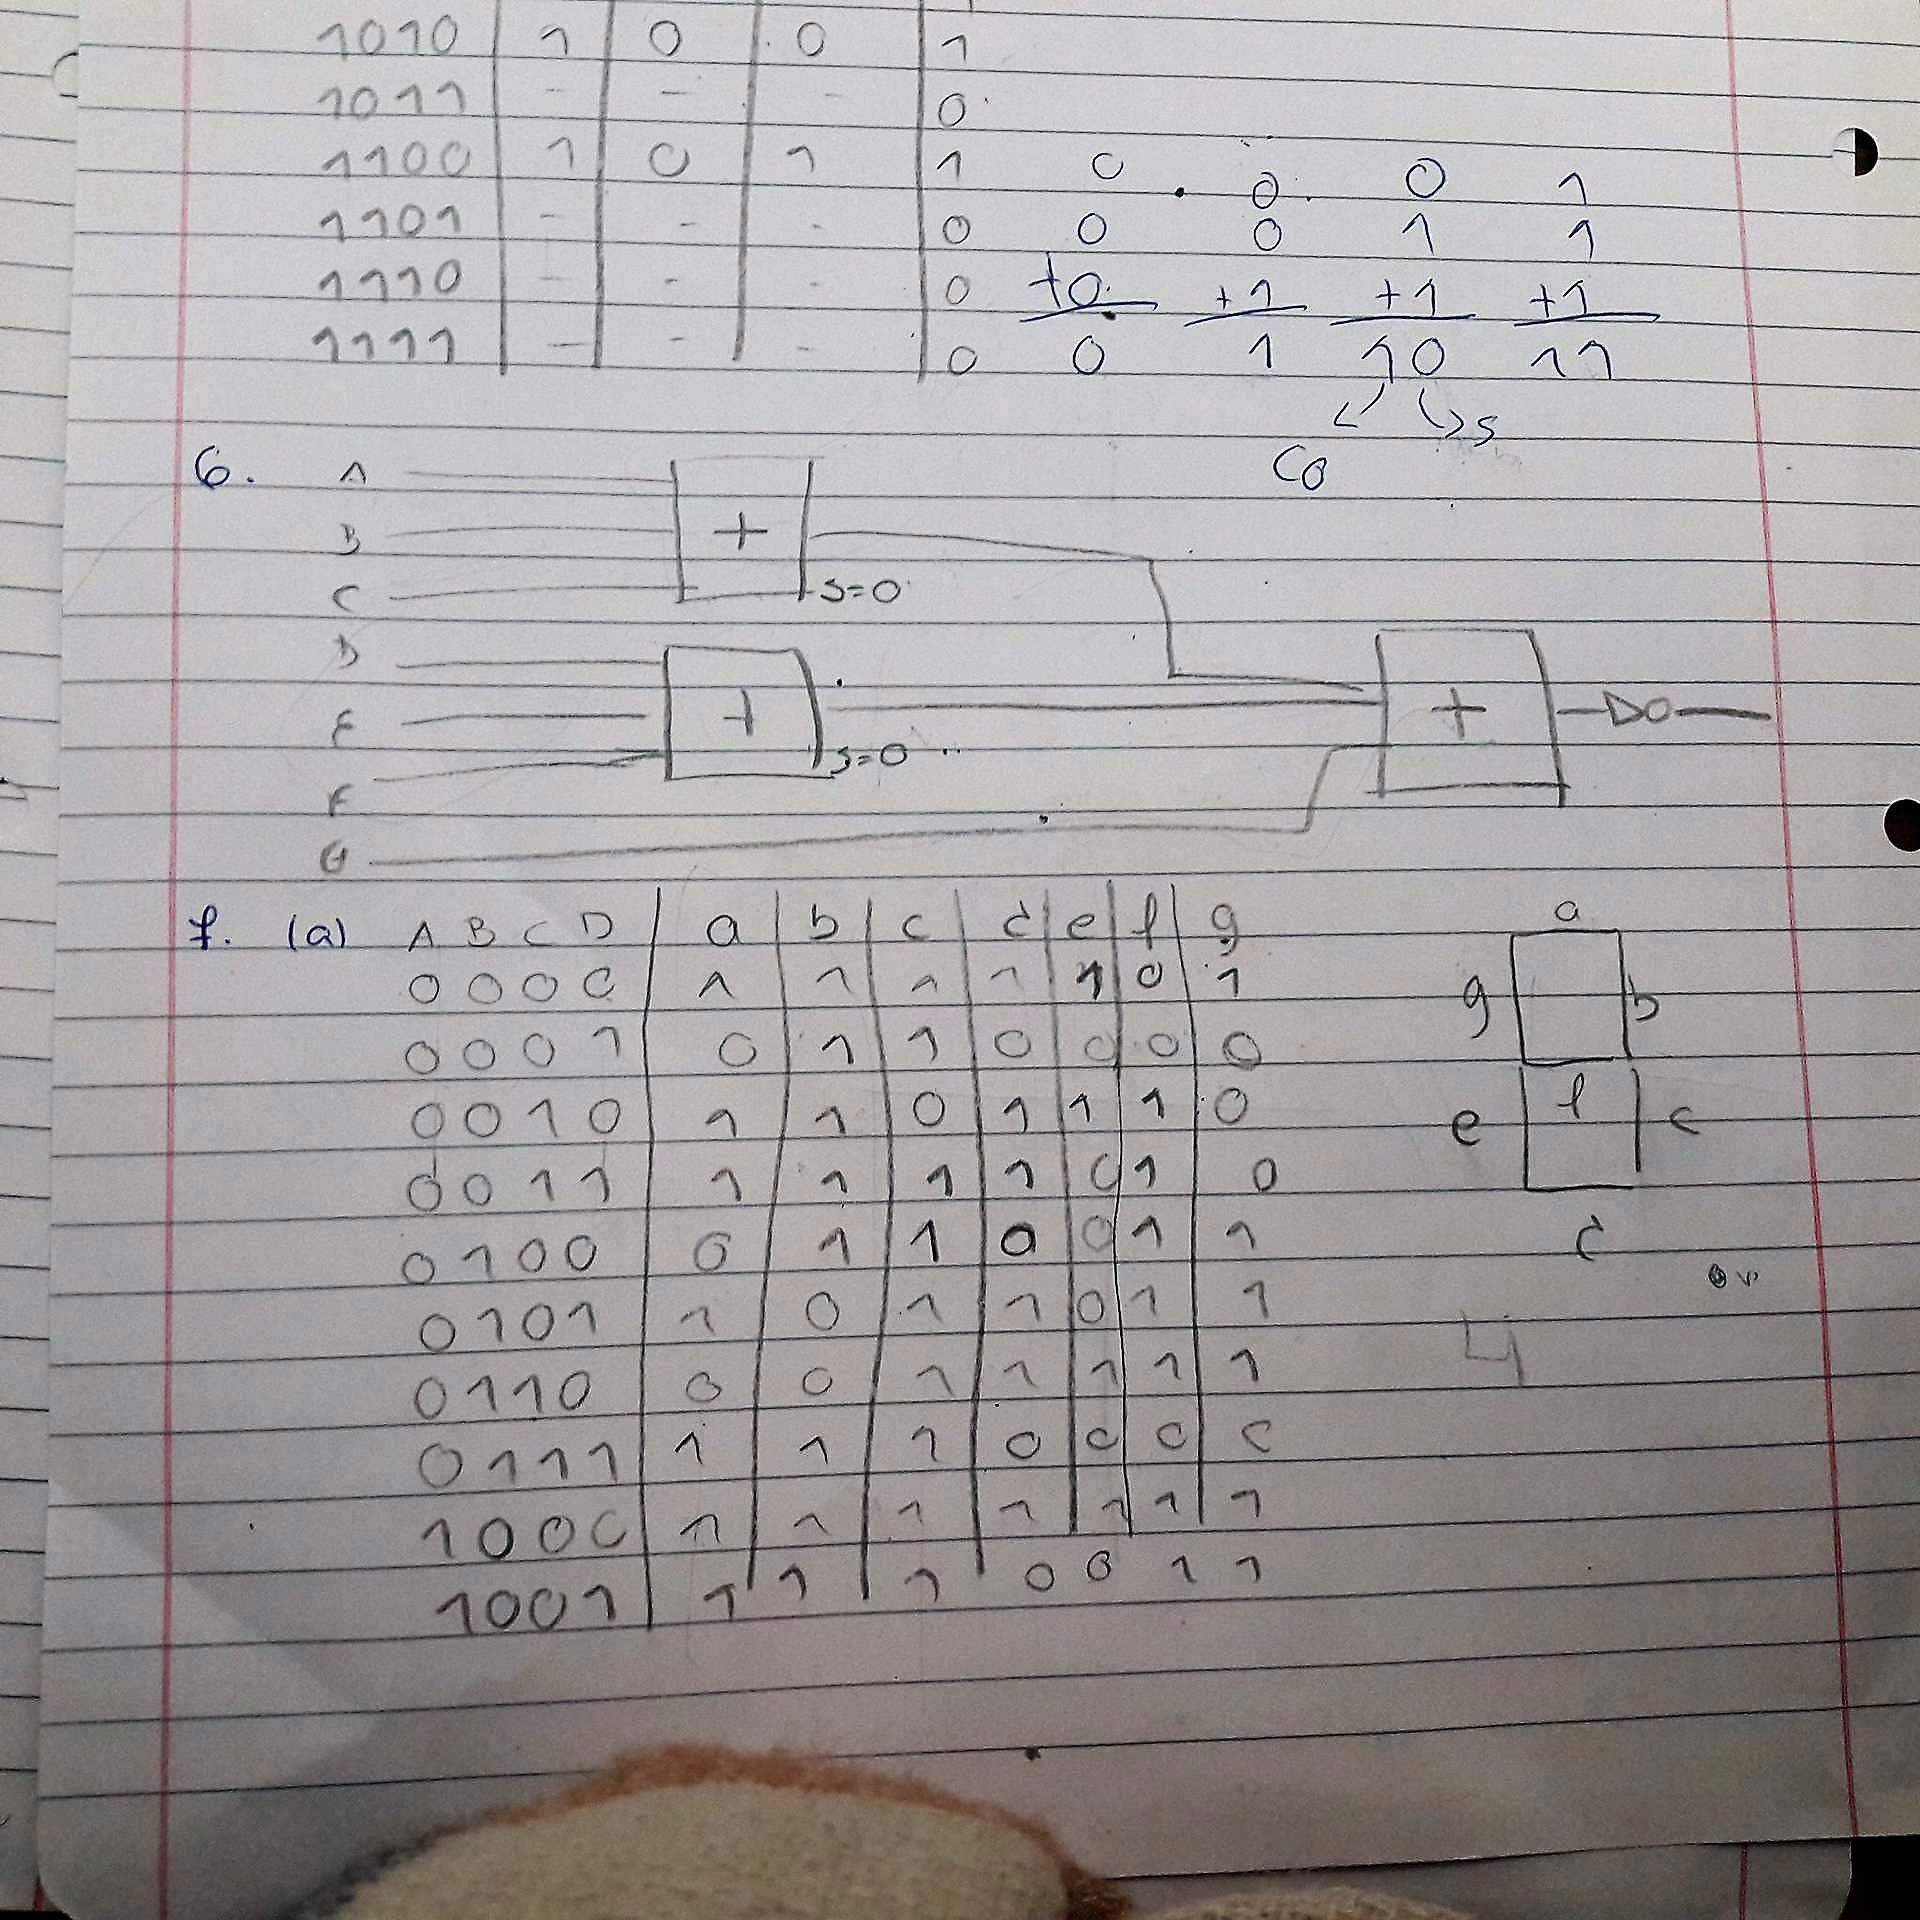 1010 1 0 0 1
1011 - - - 0
1100 1 0 1 1
1101 - - - 0
1110 - - - 0
1111 - - - 0
0 0 0 1
0 0 1 1
+0 +1 +1 +1
0 1 10 11
Co s
6. A
B
C
D
E
F
G
+
S=0
+
S=0
+
7. (a) A B C D a b c d e f g
0 0 0 0 1 1 1 1 1 0 1
0 0 0 1 0 1 1 0 0 0 0
0 0 1 0 1 1 0 1 1 1 0
0 0 1 1 1 1 1 1 0 1 0
0 1 0 0 0 1 1 0 0 1 1
0 1 0 1 1 0 1 1 0 1 1
0 1 1 0 0 0 1 1 1 1 1
0 1 1 1 1 1 1 0 0 0 0
1 0 0 0 1 1 1 1 1 1 1
1 0 0 1 1 1 1 0 0 1 1
a
g b
f
e c
d
4